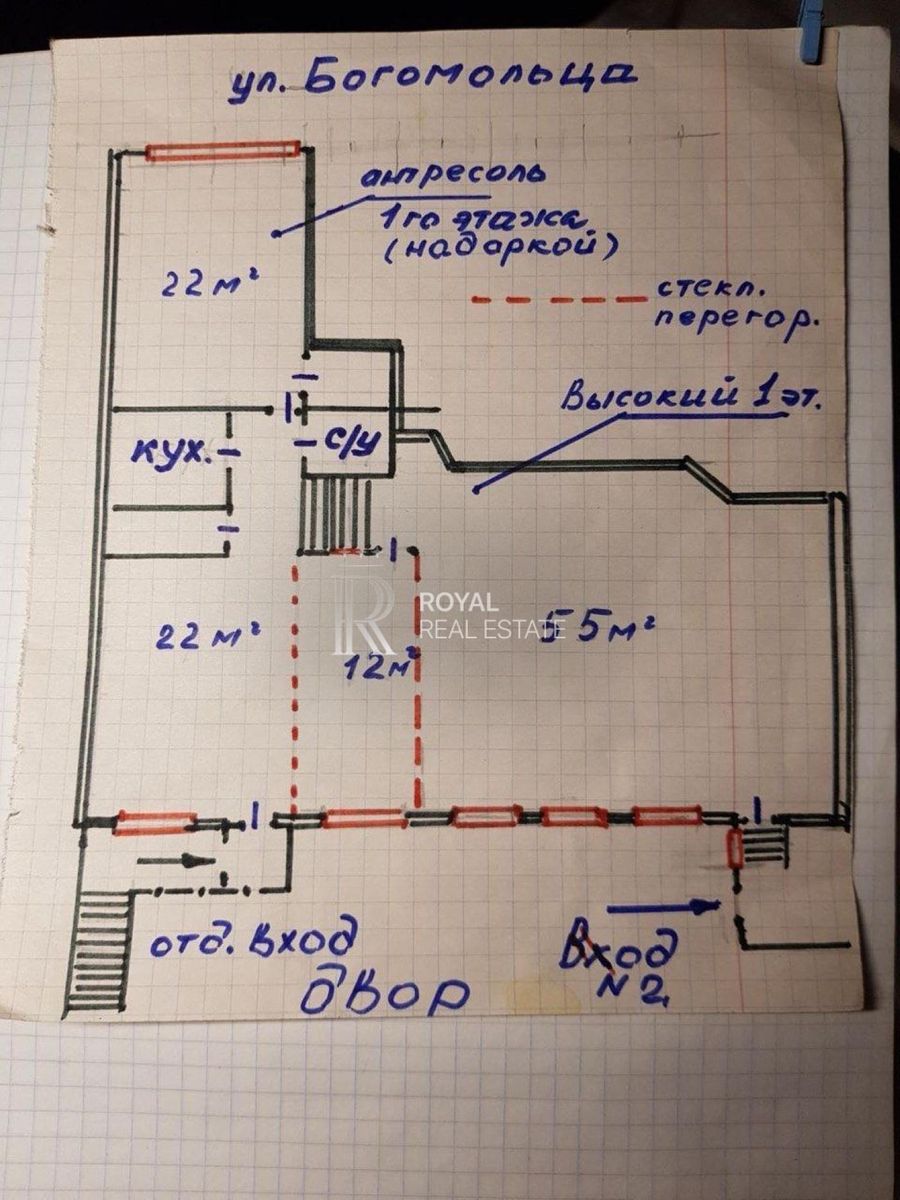 ул. Богомольца
антресоль
1го этажа
(над аркой)
22 м²
стекл.
перегор.
Высокий 1 эт.
кух.
с/у
ROYAL
REAL ESTATE
22 м²
12 м²
55 м²
отд. вход
Вход
N 2
двор